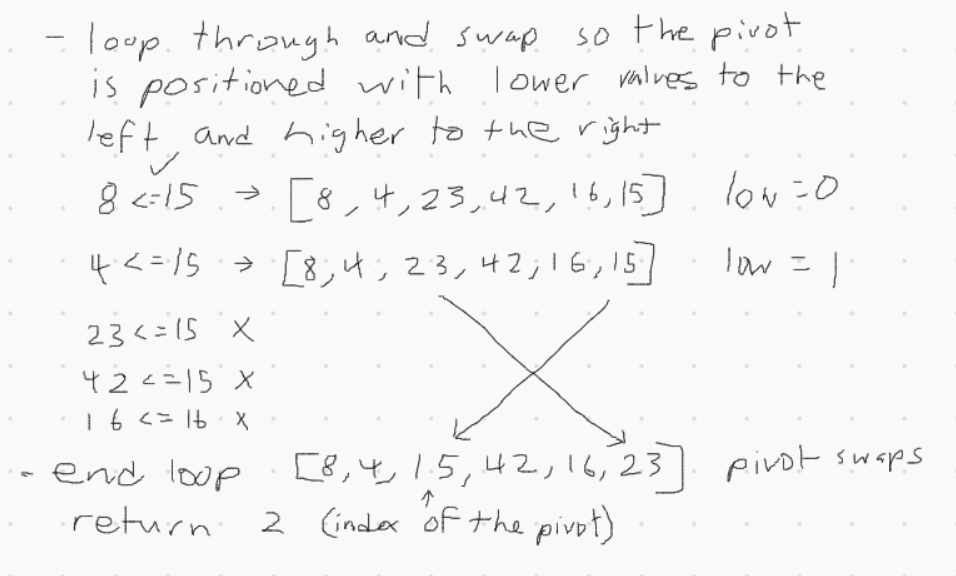 - loop through and swap so the pivot
is positioned with lower values to the
left and higher to the right
8 <= 15 ✓ → [8, 4, 23, 42, 16, 15] low = 0
4 <= 15 → [8, 4, 23, 42, 16, 15] low = 1
23 <= 15 X
42 <= 15 X
16 <= 16 X
- end loop [8, 4, 15, 42, 16, 23] pivot swaps
↑
return 2 (index of the pivot)